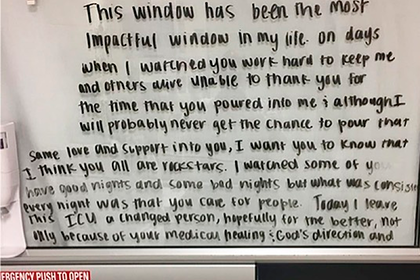 This window has been the most
impactful window in my life. on days
when I watched you work hard to keep me
and others alive unable to thank you for
the time that you poured into me & although I
will probably never get the chance to pour that
same love and support into you, I want you to know that
I think you all are rockstars. I watched some of you
have good nights and some bad nights but what was consis
every night was that you care for people. Today I leave
this ICU a changed person, hopefully for the better, not
only because of your medical healing & God's direction and
MERGENCY PUSH TO OPEN